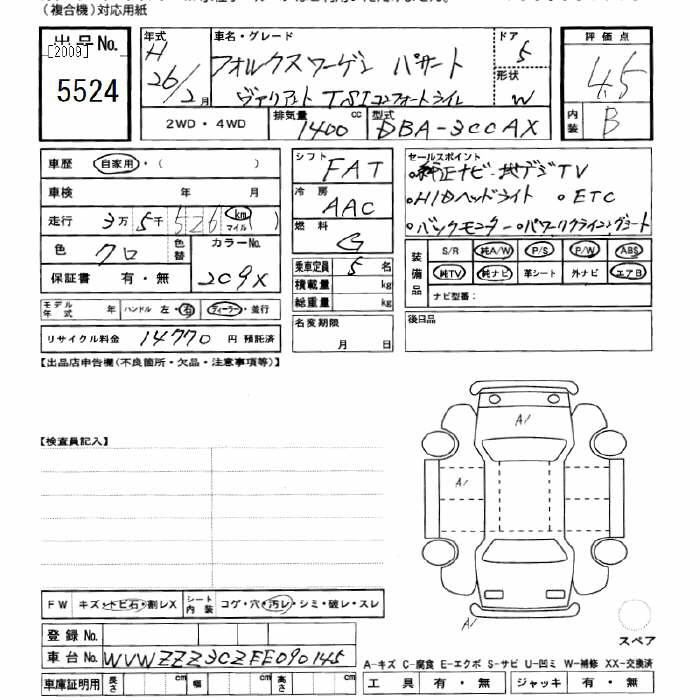 (複合機)対応用紙
出品No.
[2009]
5524
年式 H 26/2月
車名・グレード
フォルクスワーゲン パサート
ヴァリアント TSIコンフォートライン
ドア 5
形状 W
2WD・4WD
排気量 1400 cc
型式 DBA-3CCAX
評価点
4.5
内装 B
車歴 自家用・( )
車検 年 月
走行 3万5千526 km マイル ( )
色 クロ
色替
カラーNo. 2C9X
保証書 有・無
モデル年式 年
ハンドル 左・右
ディーラー・並行
リサイクル料金 14770 円 預託済
シフト FAT
冷房 AAC
燃料 G
乗車定員 5 名
積載量 kg
総重量 kg
名変期限
月 日
セールスポイント
・純正ナビ・地デジTV
・HIDヘッドライト ・ETC
・バックモニター・パワーリクライニングシート
装備品
S/R 純A/W P/S P/W ABS
純TV 純ナビ 革シート 外ナビ エアB
ナビ型番:
後日品
【出品店申告欄(不良箇所・欠品・注意事項等)】
【検査員記入】
A1
A1
A1
スペア
FW キズ・トビ石・割レX
シート内装 コゲ・穴・汚レ・シミ・破レ・スレ
登録No.
車台No. WVWZZZ3CZEE090145
車庫証明用 長さ cm 幅 cm 高さ cm
A-キズ C-腐食 E-エクボ S-サビ U-凹ミ W-補修 XX-交換済
工具 有・無 ジャッキ 有・無